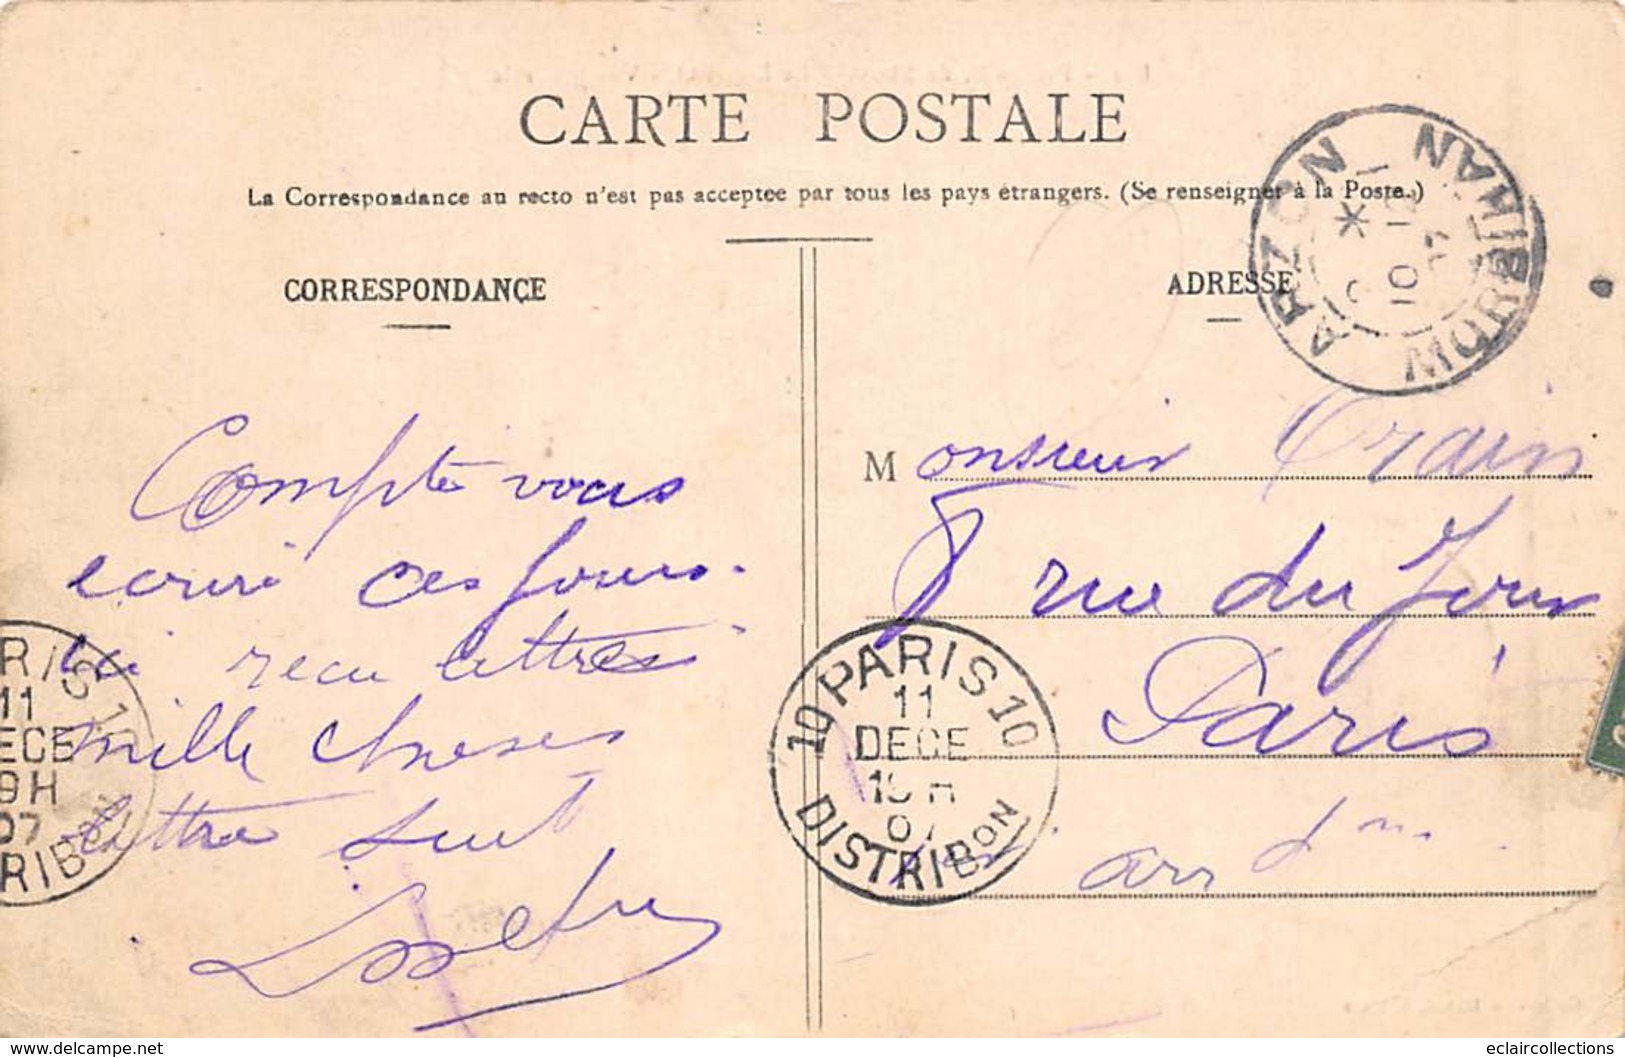 CARTE POSTALE
La Correspondance au recto n'est pas acceptee par tous les pays étrangers. (Se renseigner à la Poste.)
CORRESPONDANCE
ADRESSE
ARZON
MORBIHAN
10 12
07
Compte vous
ecrire ces jours.
ai recu lettres
mille choses
lettre suit
Monsieur Orain
5 rue du Jour
Paris
arr
PARIS 10
11
DECE
07
10 DISTRIBON
RIS 10
11
ECE
9H
07
RIBON
delcampe.net
eclaircollections